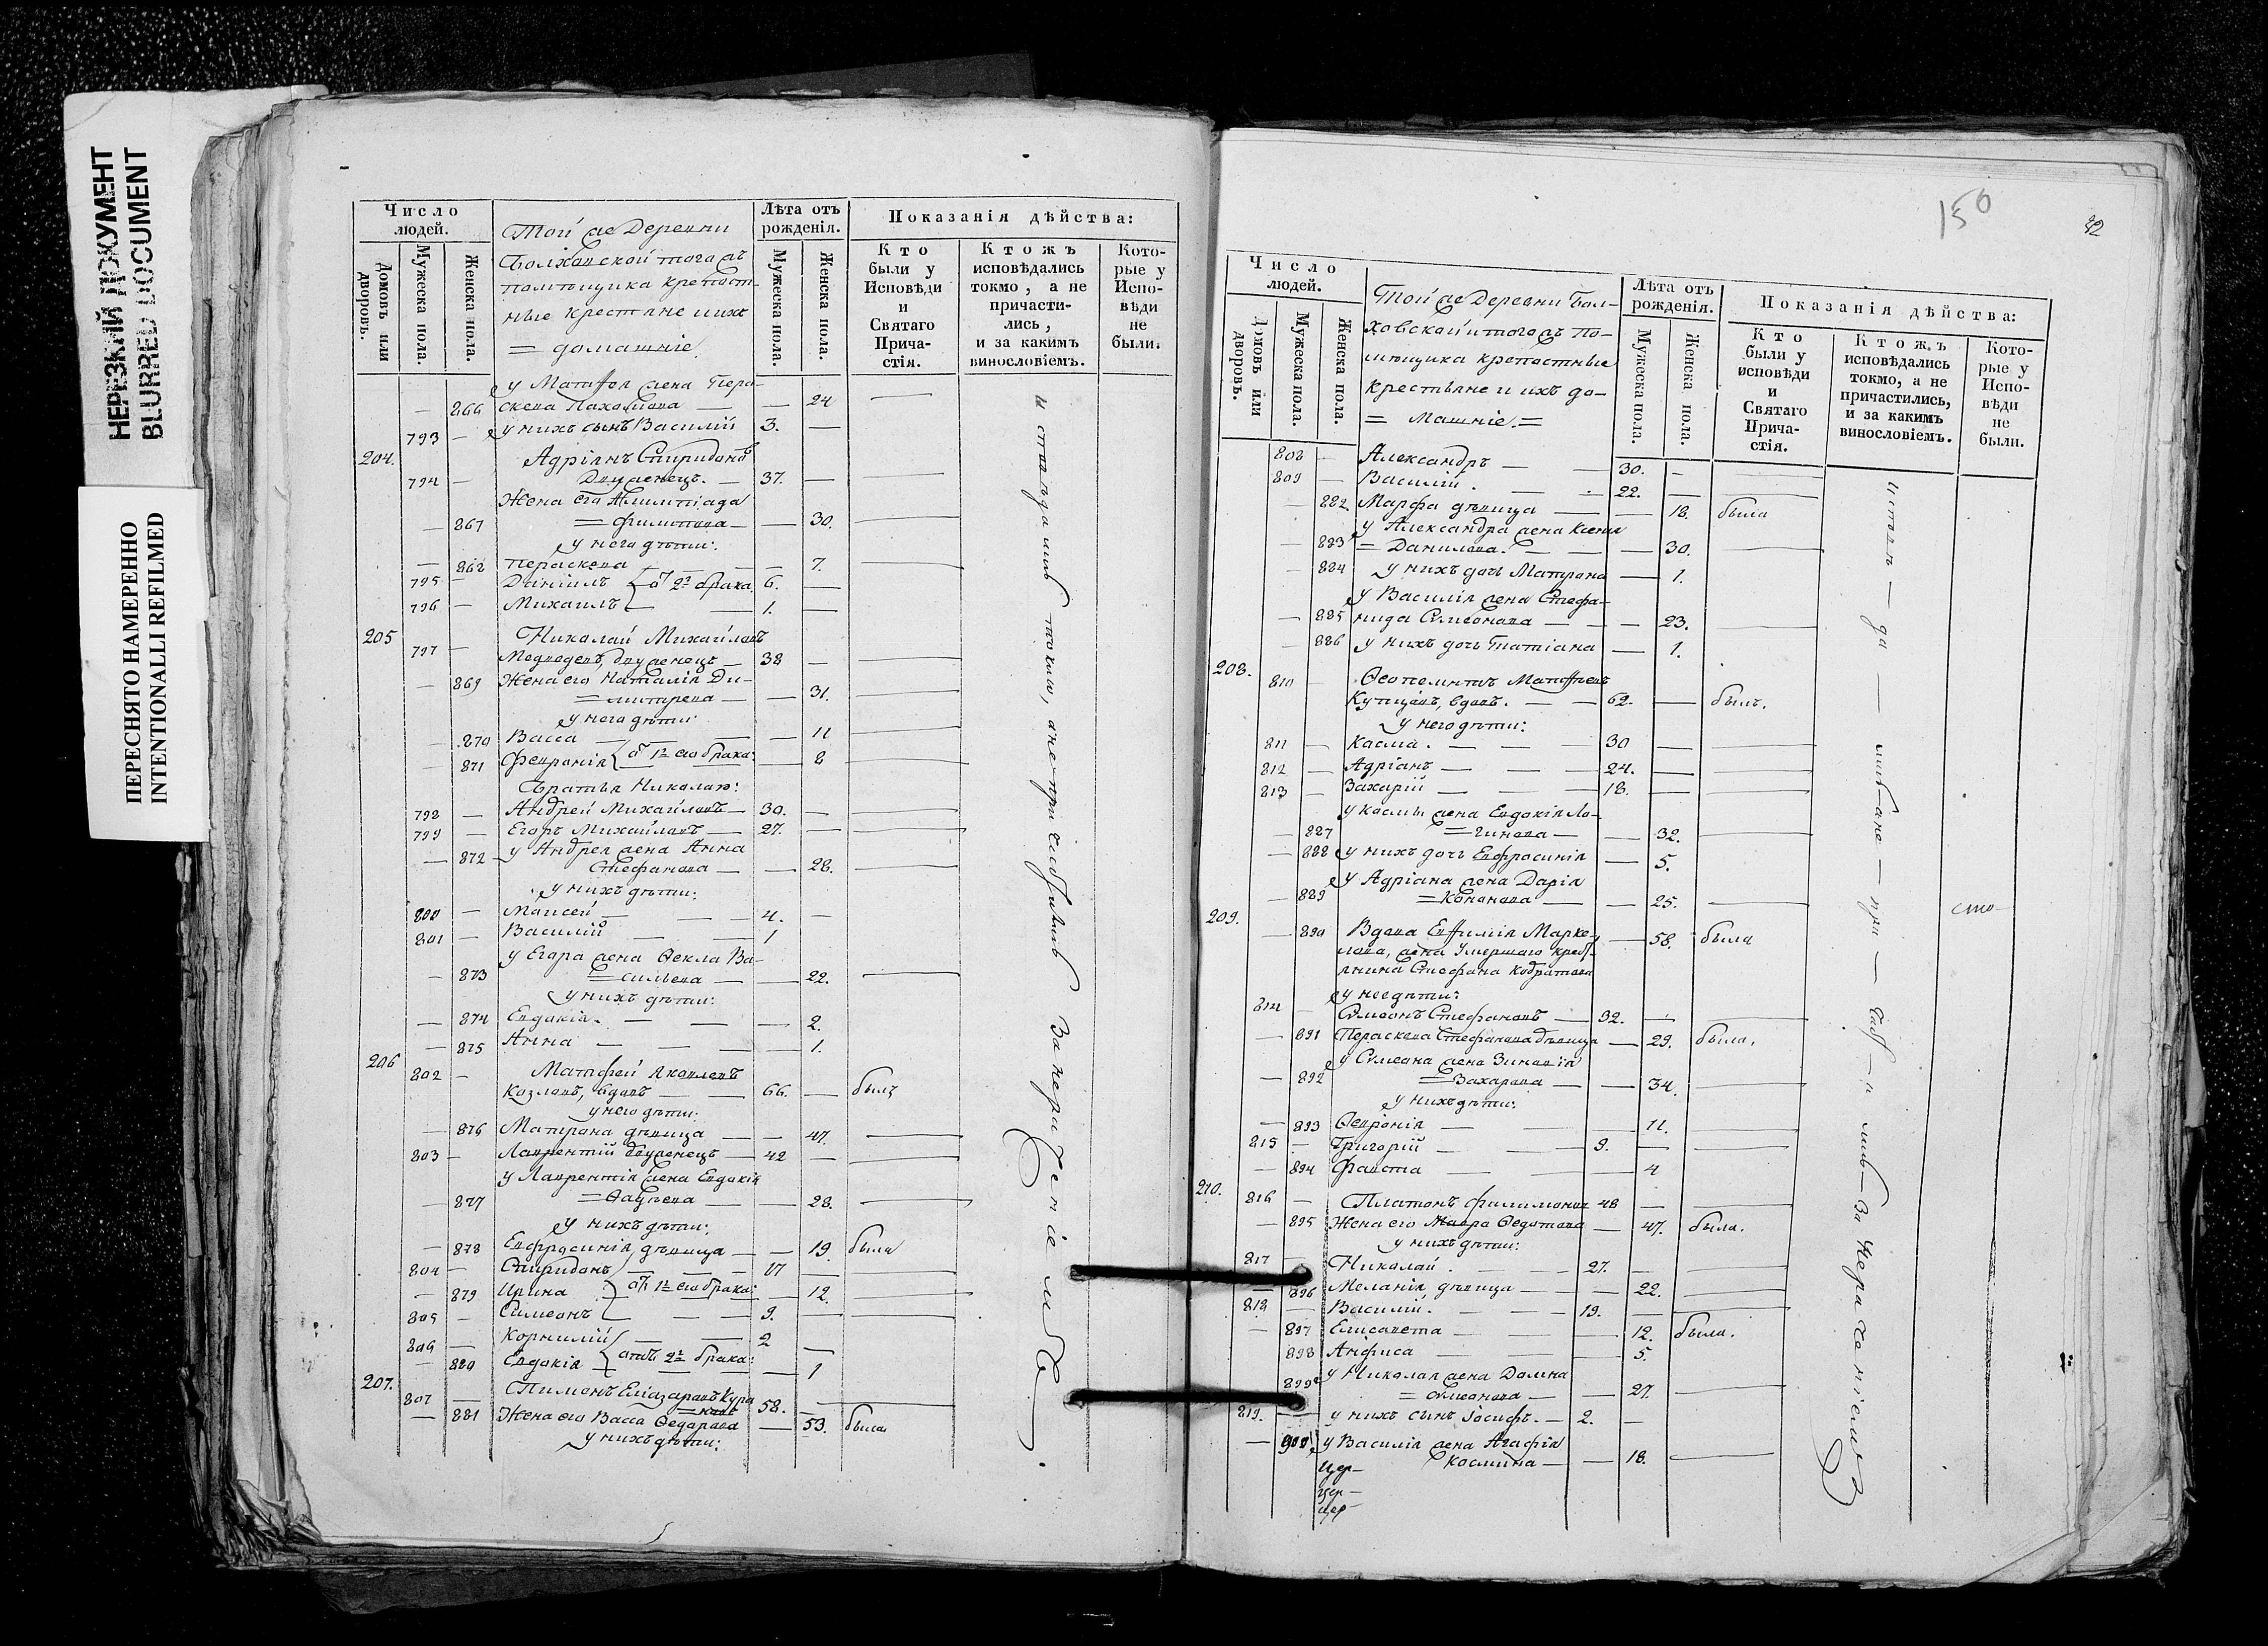 НЕРЕЗКИЙ ДОКУМЕНТ
BLURRED DOCUMENT
ПЕРЕСНЯТО НАМЕРЕННО
INTENTIONALLI REFILMED
Число людей.
Домовъ или дворовъ.
Мужеска пола.
Женска пола.
Той же Деревни
Болховской того жъ
помѣщика крепост-
ные крестьяне и ихъ
= домашніе.
Лѣта отъ рожденія.
Мужеска пола.
Женска пола.
Показанія дѣйства:
Кто были у Исповѣди и Святаго Прича-стія.
Ктожъ исповѣдались токмо, а не причасти-лись, и за какимъ винословіемъ.
Кото-рые у Испо-вѣди не были.
у Матфея жена Пера-
— 866 скева Пахомова — — 24
793 — у нихъ сынъ Василій 3. —
204. Адріанъ Спиридонов
794 — двуженецъ. — 37. —
Жена его Олимпіада
— 867 = Филипова — — 30.
у него дѣти:
— 868 Пераскева — — 7.
795 — Даніилъ от 2го брака. 6. —
796 — Михаилъ — 1. —
205 Николай Михайловъ
797 — Медведевъ, двуженецъ — 38 —
— 869 Жена его Наталія Ди-
= митрева — — 31.
у него дѣти:
— 870 Васса — — — 11
— 871 Февронія от 1го его брака: — 8
братья Николаю:
798 — Андрей Михайловъ — 30. —
799 — Егоръ Михайловъ — 27. —
— 872 у Андрея жена Анна
Стефанова — — 28.
у нихъ дѣти:
800 — Моисей — — 4. —
801 — Василій — — 1
у Егора жена Ѳекла Ва-
— 873 = сильева — — 22.
у нихъ дѣти:
— 874 Евдокія. — — — 2.
— 875 Анна — — — 1.
206 802 — Матфей Яковлевъ
Козловъ, вдовъ — — 66. — былъ
у него дѣти:
— 876 Матрона дѣвица — — 47.
803 — Лаврентій двуженецъ — 42 —
у Лаврентія жена Евдокія
— 877 = Фадѣева — — 28.
у нихъ дѣти:
— 878 Евфросинія, дѣвица — — 19 была
804 — Спиридонъ — — 17 —
— 879 Ирина от 1го его брака: — 12.
805 — Симеонъ — — 9. —
806 — Корнилій — — 2 —
— 880 Евдокія отъ 2го брака: — 1
207. 807 — Пименъ Еліазаровъ 58. —
— 881 Жена его Васса Ѳедорова — 53. была
у нихъ дѣти:
и стопада
токмо, а не причастились За нераченіемъ
150
42
Число людей.
Домовъ или дворовъ.
Мужеска пола.
Женска пола.
Той же Деревни Бол-
ховской и того жъ по-
мѣщика крепостные
крестьяне и ихъ до-
= машніе. =
Лѣта отъ рожденія.
Мужеска пола.
Женска пола.
Показанія дѣйства:
Кто были у исповѣди и Святаго Прича-стія.
Ктожъ исповѣдались токмо, а не причастились, и за какимъ винословіемъ.
Кото-рые у Испо-вѣди не были.
808 — Александръ — — 30. —
809 — Василій. — — 22. —
— 882. Марфа дѣвица — — 18. была
у Александра жена Ксенія
— 883 = Данилова. — — 30.
— 884 у нихъ дочь Матрона — 1.
у Василія жена Стефа-
— 885 нида Симеонова — — 23.
— 886 у нихъ дочь Татіана — 1.
208. 810 — Ѳеопемптъ Матфѣевъ
Купцовъ, вдовъ. — — 62. — былъ.
у него дѣти:
811 — Касма. — — 30 —
812 — Адріанъ — — 24. —
813 — Захарій — — 18. —
у Касмы жена Евдокія Ло-
— 887 = гинова — — 32.
— 888 у нихъ дочь Евфросинія — 5.
у Адріана жена Дарія
— 889 = Кононова — — 25.
209. — 890 Вдова Евфимія Марке- — 58. была
лова, жена умершаго крест-
янина Стефана Кодратова
у нее дѣти:
814 — Симеонъ Стефановъ — 32. —
— 891 Пераскева Стефанова дѣвица — 29. была.
у Симеона жена Зиновія
— 892 = Захарова — — 34.
у нихъ дѣти:
— 893 Февронія — — 11.
815 — Григорій — — 9. —
— 894 Фавста — — 4
210. 816 — Платонъ Филимонов 48 —
— 895 Жена его Мавра Ѳедотова — 47. была.
у нихъ дѣти:
817 — Николай. — — 27. —
— 896 Меланія дѣвица — — 22.
818 — Василій. — — 19. —
— 897 Елисавета — — 12. была.
— 898 Анфиса — — 5.
899 у Николая жена Домна
= Симеонова — — 27.
819. — у нихъ сынъ Іосифъ. — 2. —
— 900 у Василія жена Агафія
Космина — — 18.
Цер-
Цер-
цер-